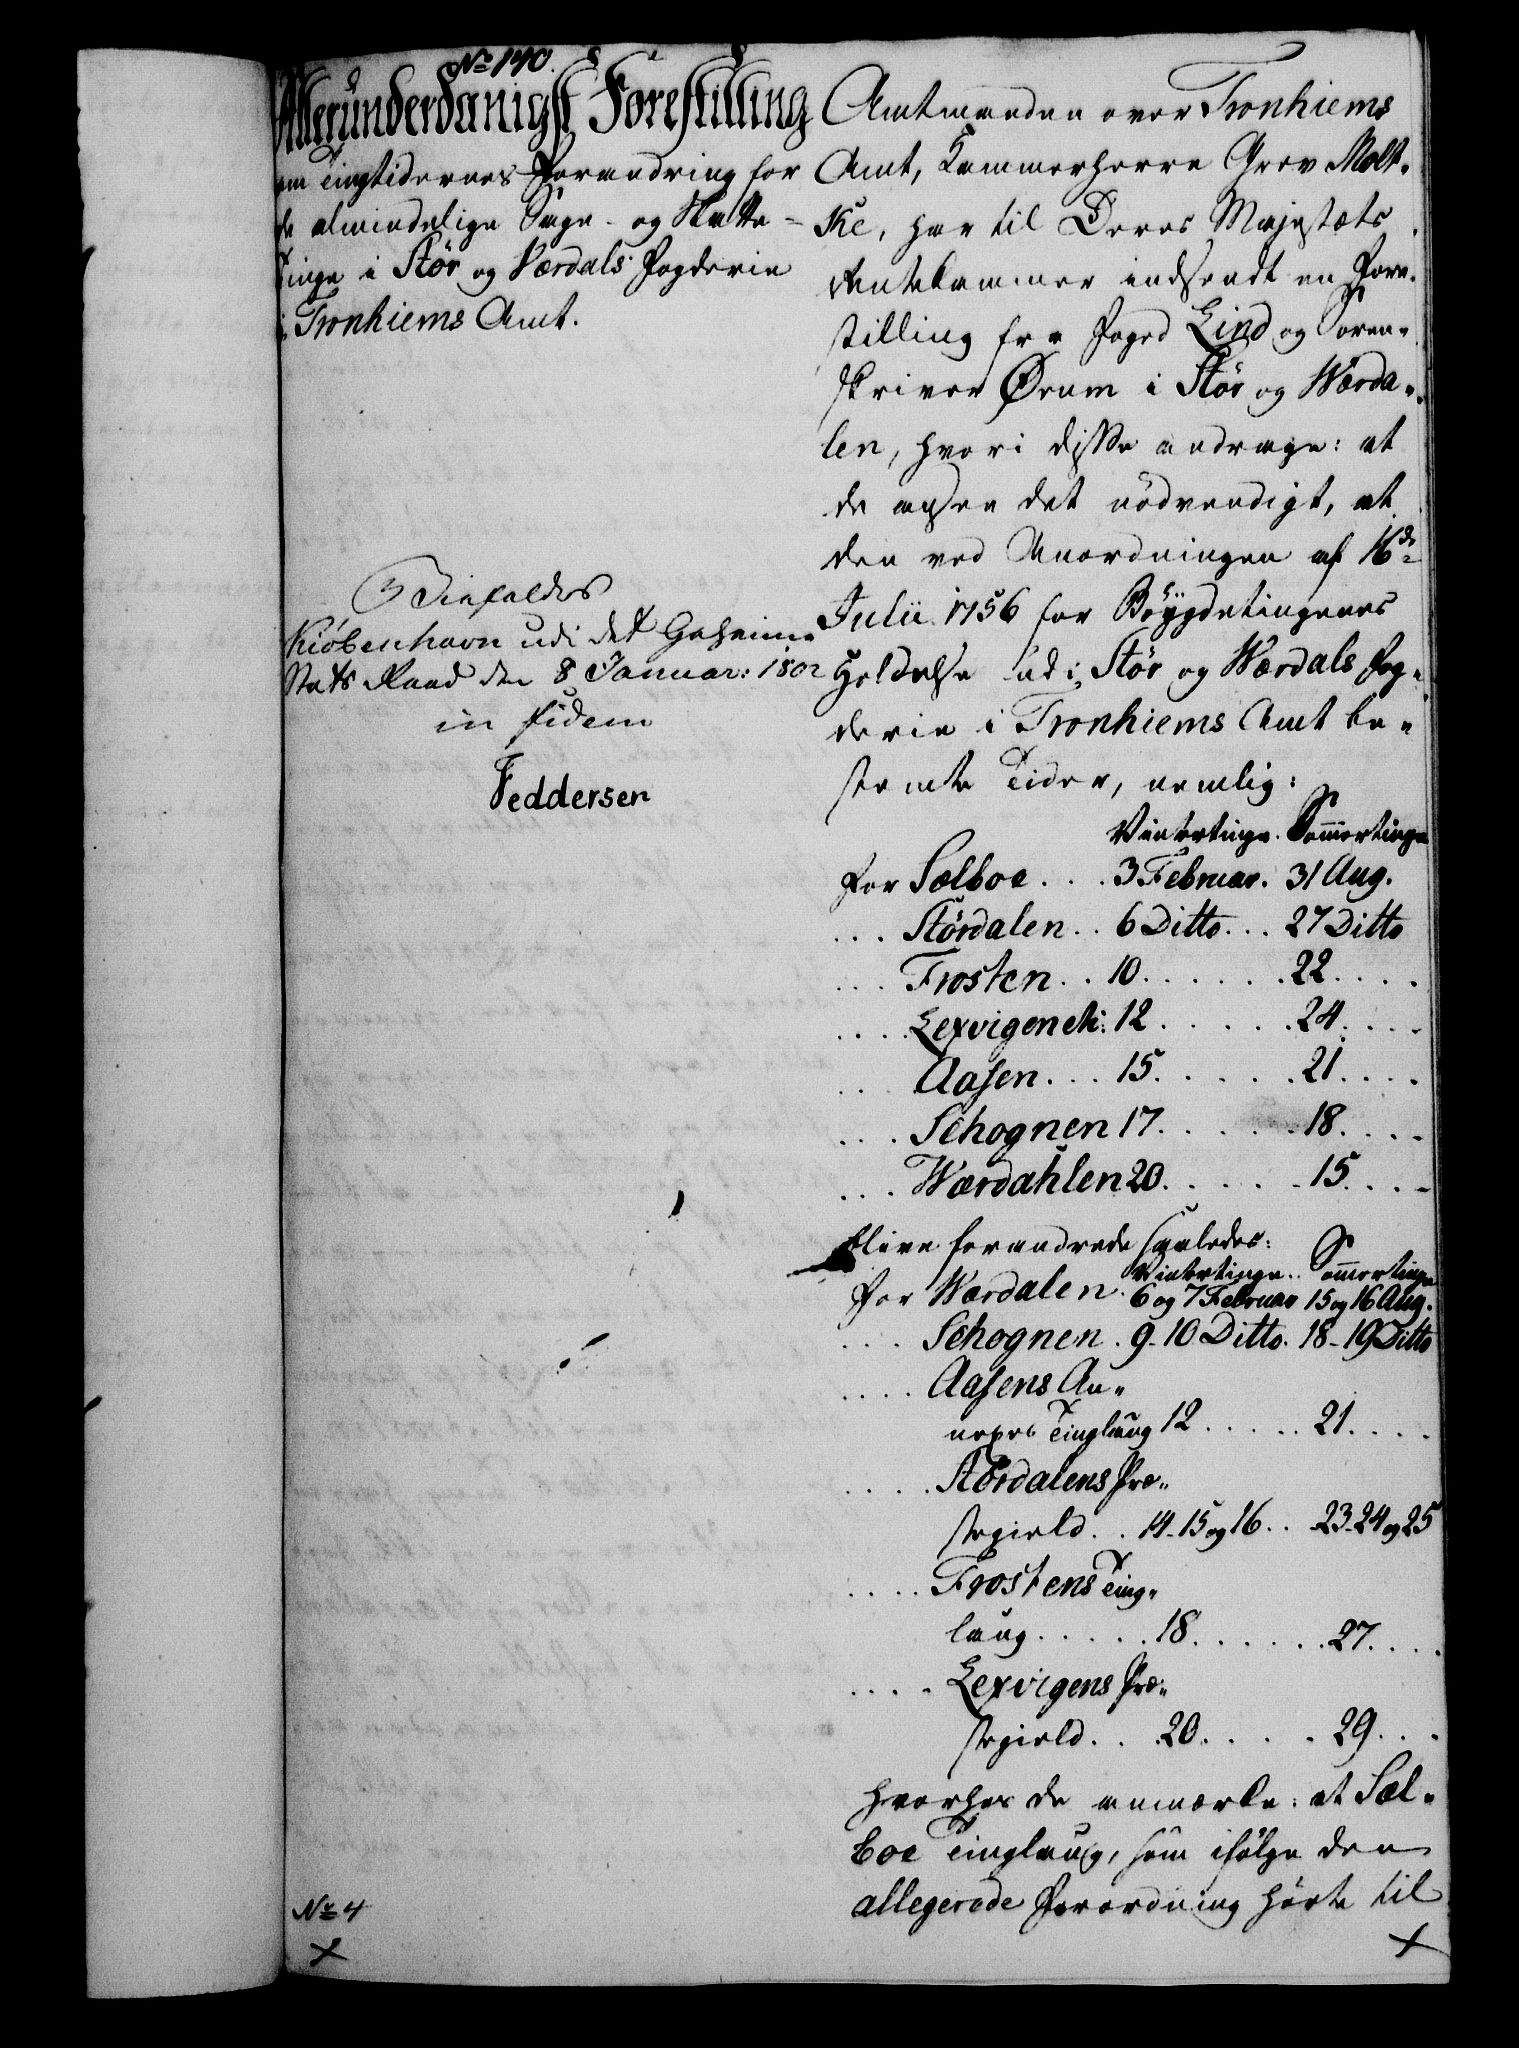 No 140.
Allerunderdanigst Forestilling
om Tingtidernes Forandring for
de almindelige Sage- og Skatte-
tinge i Stör og Værdals Fogderie
i Tronhiems Amt.
Bifaldes
Kiöbenhavn udi det Geheime
Stats Raad den 8 Januar: 1802
in fidem
Feddersen
No 4
Amtmanden over Tronhiems
Amt, Kammerherre Grev Molt-
ke, har til Deres Majestæts
Rentekammer indsendt en Fore-
stilling fra Foged Lind og Soren-
skriver Ørum i Stör og Wærda-
len, hvori disse andrage: at
de ansee det nödvendigt, at
den ved Anordningen af 16de
Julii 1756 for Böygdetingenes
Holdelse udi Stör og Wærdals Fog-
derie i Tronhiems Amt be-
stemte Tider, nemlig:
Vintertinge. Sommertinge
for Sælboe . . . 3 Februar. 31 Aug.
. . . Stördalen . . 6 Ditto . . . 27 Ditto
. . . Frosten . . 10 . . . . . . 22 . . . .
. . . . Lexvigen 12 . . . . . . 24 . . . .
. . . Aasen . . . 15 . . . . . . 21 . . . .
. . . . Schognen 17 . . . . . . 18 . . . .
. . . . Wærdahlen 20 . . . . . . 15 . . . .
blive forandrede saaledes:
Vintertinge . . Sommertinge
for Wærdalen . 6 og 7 Februar 15 og 16 Aug.
. . . . Schognen . 9 - 10 Ditto. 18 - 19 Ditto
. . . . Aasens An-
nexes Tinglaug 12 . . . . . 21 . . . .
. . . . . Stördalens Præ-
stegield . . 14 - 15 og 16 . . 23 - 24 og 25
. . . . Frostens Ting-
laug . . . . . 18 . . . . . . 27 . . . .
. . . . Lexvigens Præ-
stegield . . . 20 . . . . . 29 . . .
hvorhos de anmærke: at Sæl-
boe Tinglaug, som ifölge den
allegerede Forordning hörte til